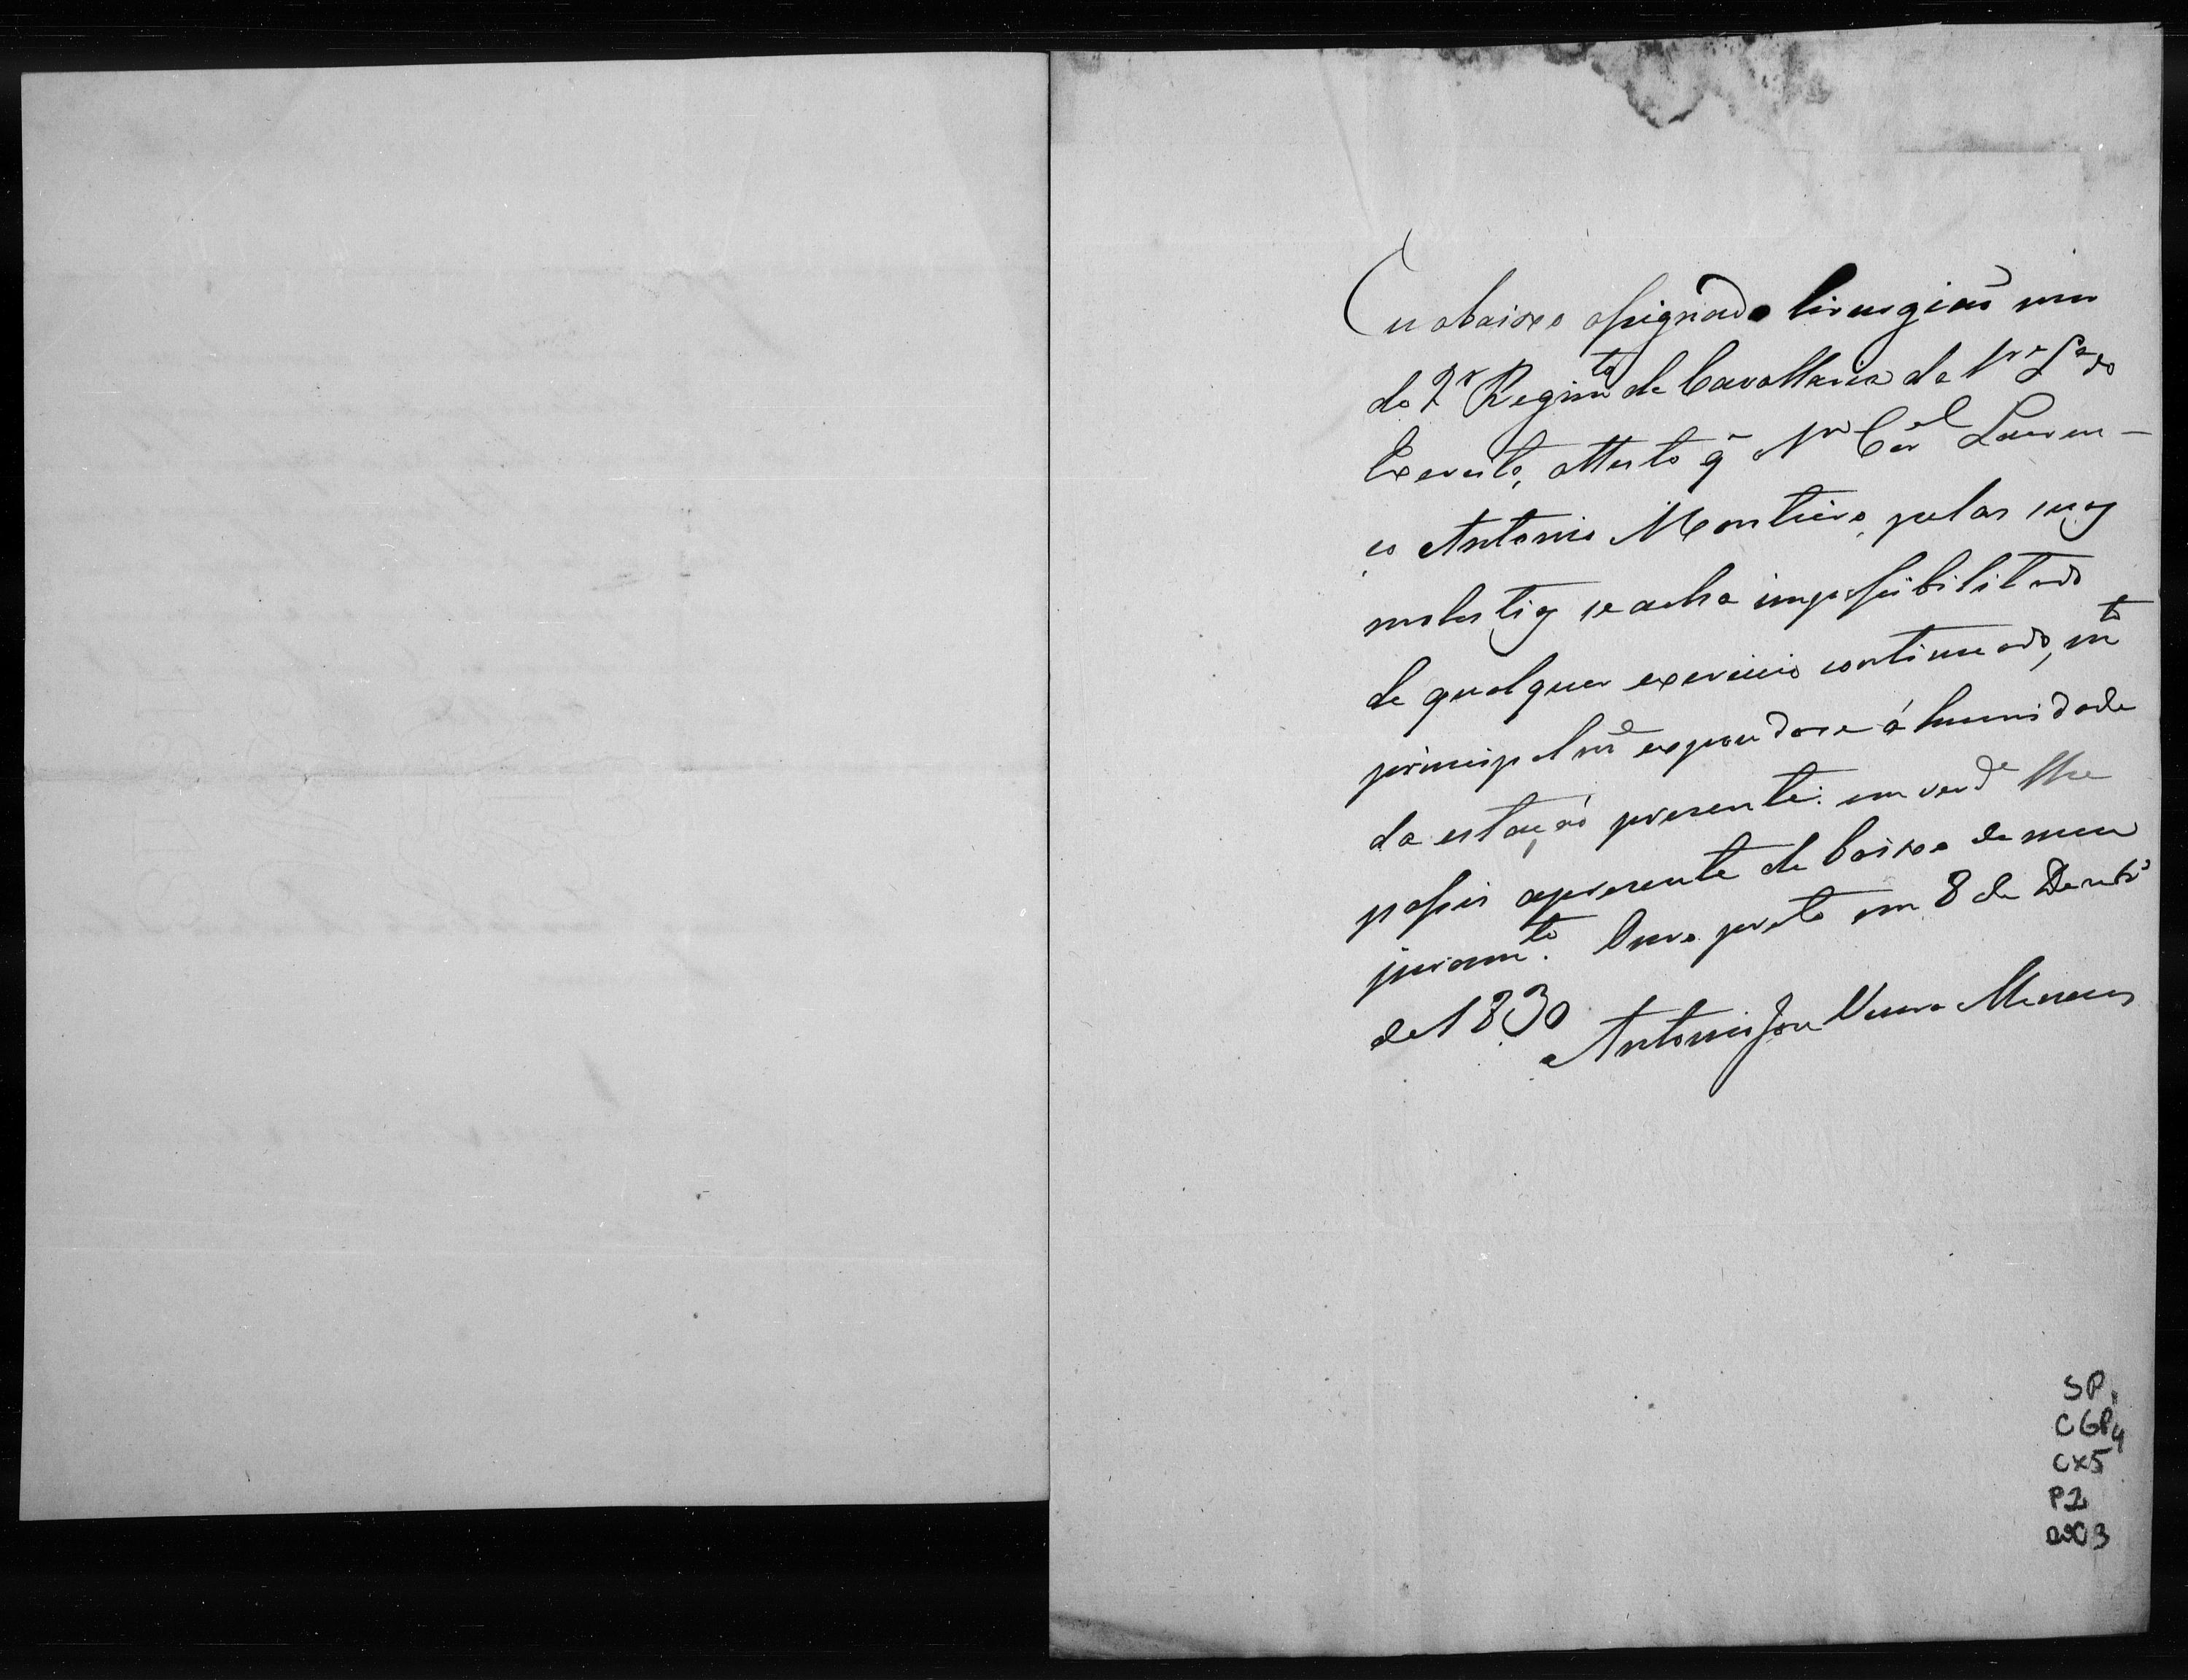 Eu abaixo assignado Cirurgiaõ mor
do 2º Regimto de Cavallaria de 1ra La do
Exercito, attesto q̃ o Snr Corel Louren-
ço Antonio Monteiro, pelas suas
molestias se acha impossibilitado
de qualquer exercicio continuado, mto
principalme expondose á humidade
da estação presente: em verde lhe
passei a presente de baixo de meu
juramto. Ouro preto em 8 de Dezbro
de 1830
Antonio Jose Vieira Menezes
SP
CGP4
CX5
P2
DOC3